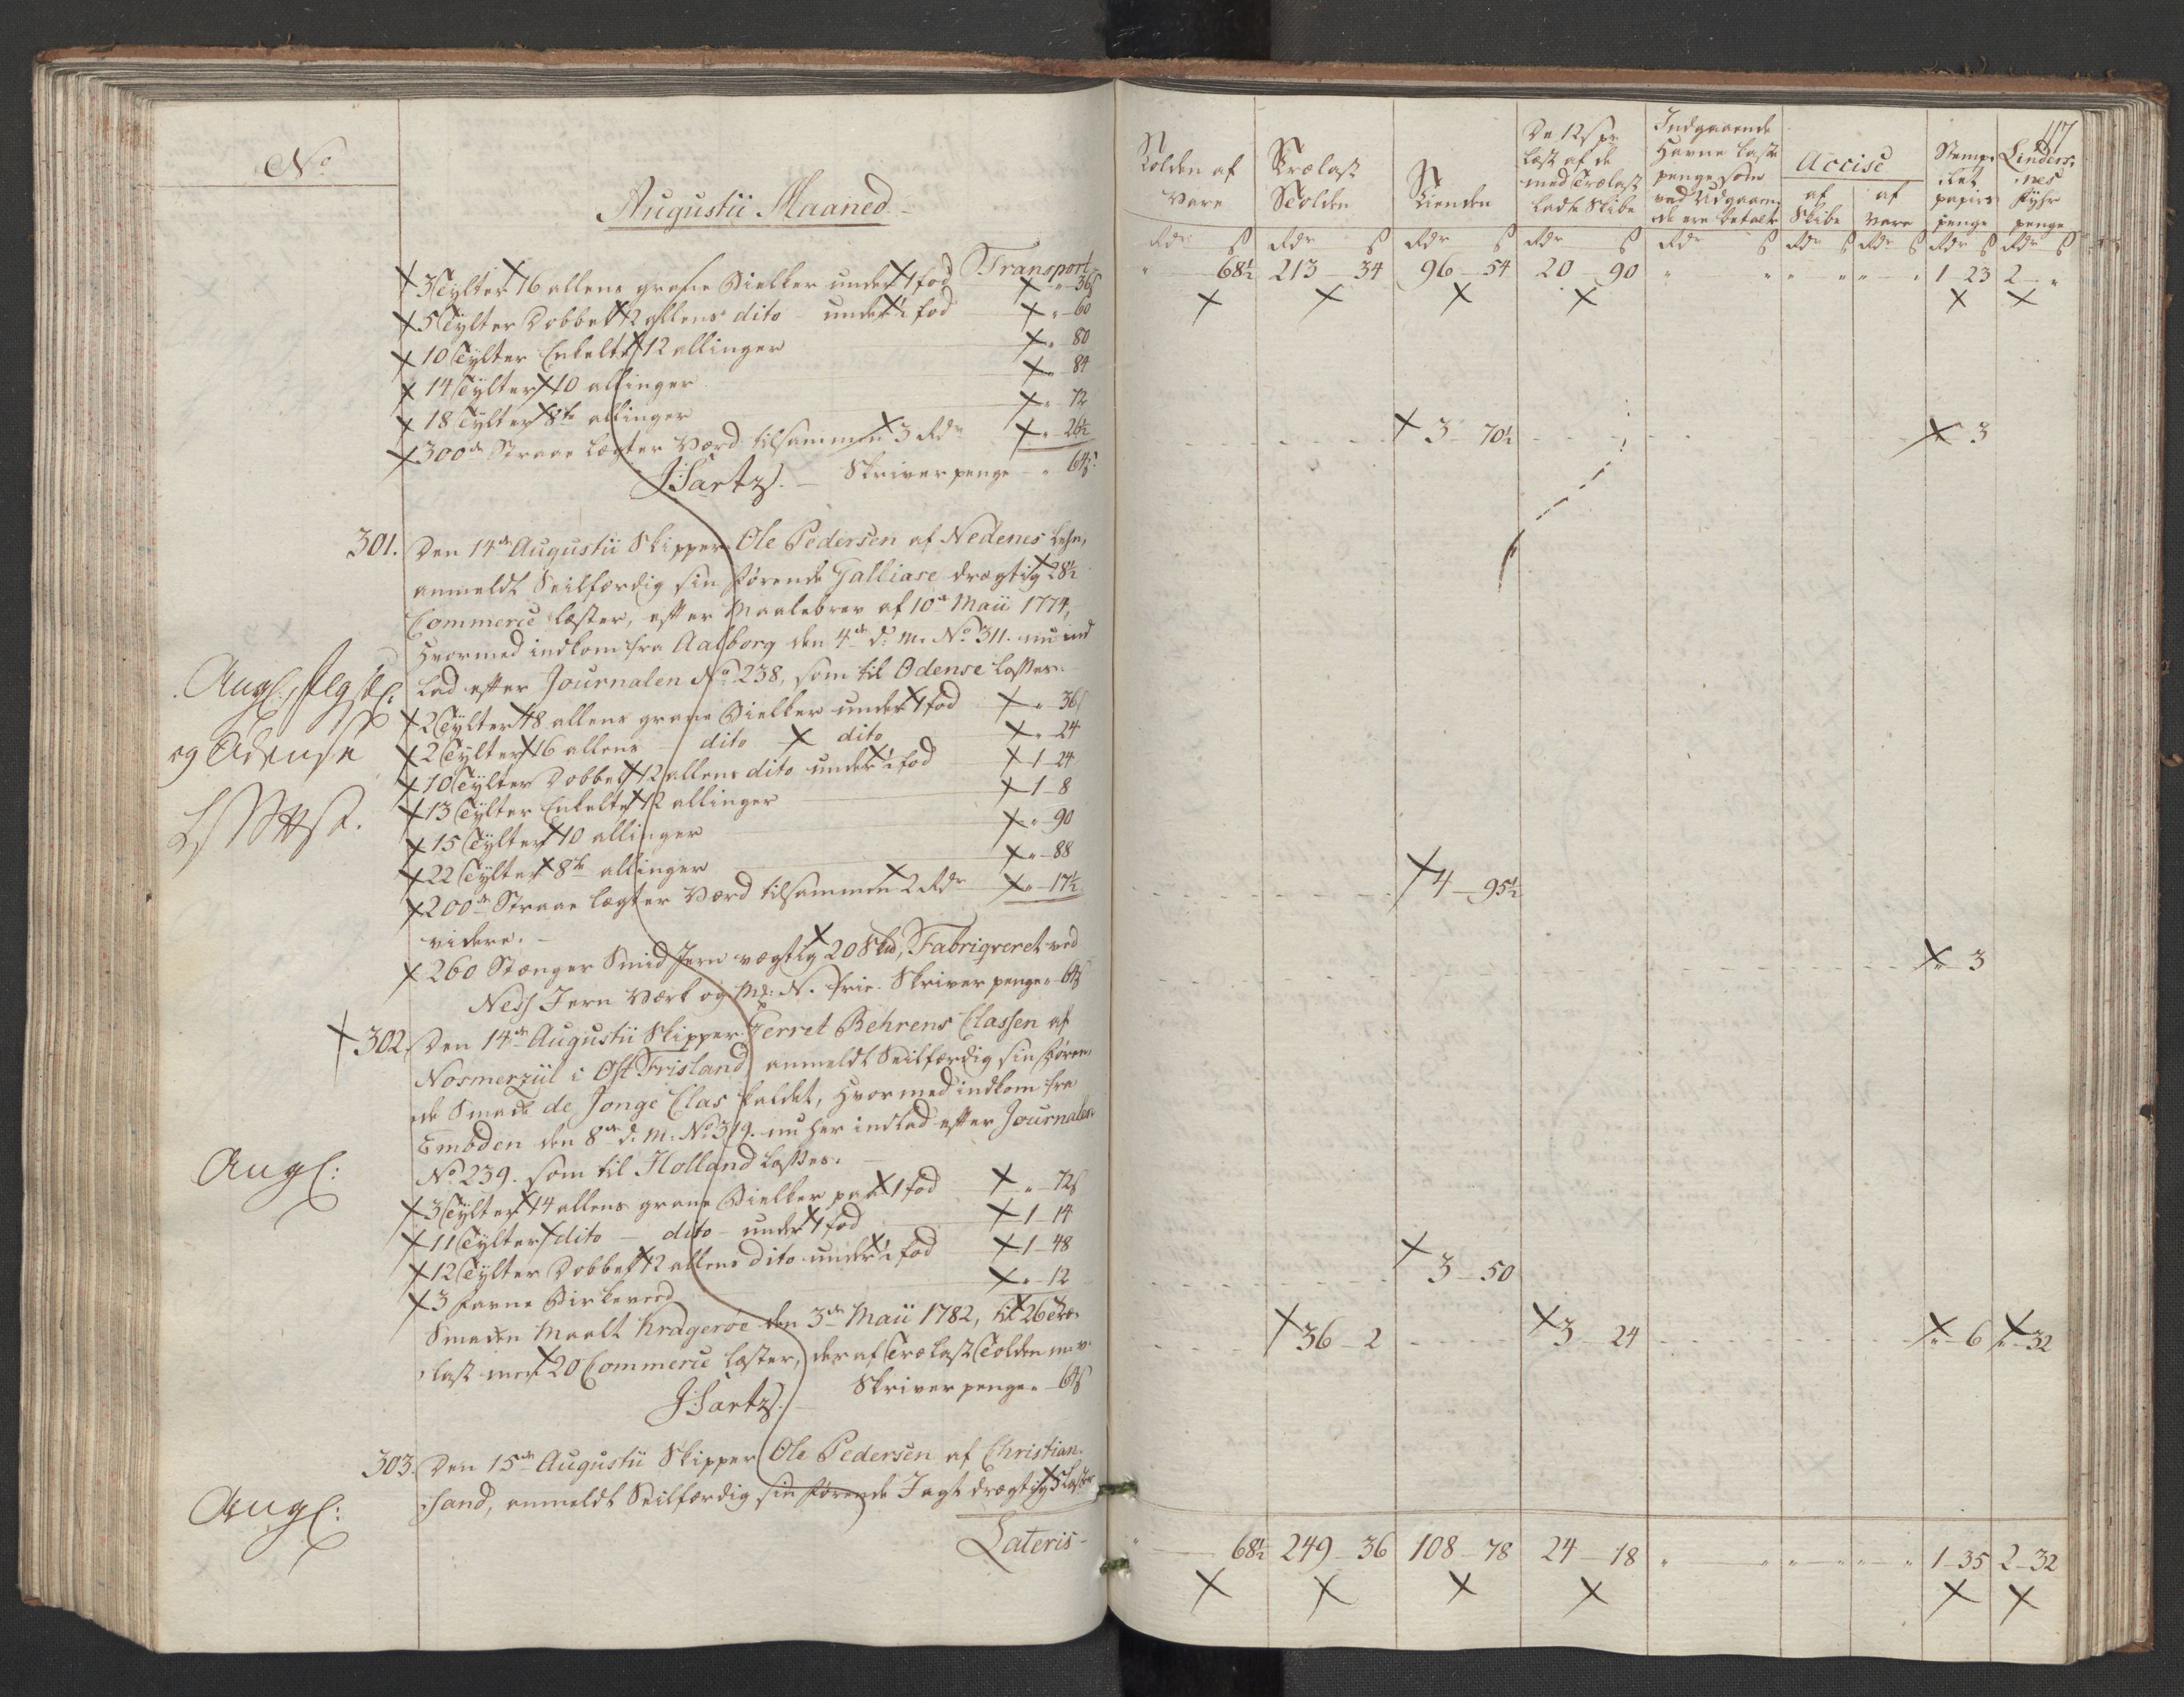 No
Augustii Maaned
Transport
3 Tylter 16 allens grane Bielker under 1 fod " 36 s
5 Tylter Dobbelt 12 allens dito under ½ fod " 60
10 Tylter Enkelte 12 allinger " 80
14 Tylter 10 allinger " 84
18 Tylter 8te allinger " 72
300de Straae Lægter Værd tilsammen 3 Rdr " 26½
JSartz. Skriverpenge " 64 s
301. Den 14de Augustii Skipper Ole Pedersen af Nedenes Lehn,
anmeldt Seilfærdig sin förende Galliase drægtig 28½
Commerce læster, efter Maalebrev af 10de Maii 1774,
Hvormed indkom fra Aalborg den 4de d: M: No 311. nu ind
lad efter Journalen No 238, som til Odense lasses.
Angl:
og Odense
2 Tylter 18 allens grane Bielker under 1 fod " 36 s
2 Tylter 16 allens dito dito " 24
10 Tylter Dobbelt 12 allens dito under ½ fod 1 - 24
13 Tylter Enkelte 12 allinger 1 - 8
15 Tylter 10 allinger " 90
22 Tylter 8te allinger " 88
200de Straae Lægter Værd tilsammen 2 Rdr " 17½
videre.
260 Stænger Smid Jern vægtig 20 Skld, Fabriqveret ved
Ness Jern Værk og M: N. frie. Skriverpenge " 64 s
302. Den 14de Augustii Skipper Gerret Behrens Classen af
Nosmerziil i Ost Frisland, anmeldt Seilfærdig sin fören
de Smack de Jonge Clas kaldet, Hvormed indkom fra
Embden den 8de d: M: No 319. nu her indlad efter Journalen
No 239. som til Holland lasses.
Angl:
3 Tylter 14 allens grane Bielker paa 1 fod " 72 s
11 Tylter dito dito under 1 fod 1 - 14
12 Tylter Dobbelt 12 allens dito under ½ fod 1 - 48
3 favne Birkeved " 12
Smacken Maalt Krageröe den 3de Maii 1782, til 26 Træ
last med 20 Commerce læster, der af Trælast Tolden m: v:
JSartz. Skriverpenge " 64 s
303. Den 15de Augustii Skipper Ole Pedersen af Christian
sand, anmeldt Seilfærdig sin förende Jagt drægtig 5 læster
Angl:
Lateris
117
Tolden af Vare
Trælast Tolden
Tienden
De 12 s pr læst af de med Trælast ladte Skibe
Indgaaende Havne laste penge som ved Udgaaende ere betalt
Accise
af Skibe
af Vare
Stemplet papirs penge
Lindersnes fyhr penge
Rdr s Rdr s Rdr s Rdr s Rdr s Rdr s Rdr s Rdr s Rdr s
" 68½ 213 - 34 96 - 54 20 - 90 " " " " " " 1 - 23 2 - "
3 - 70½ " 3
4 - 95½
" 3
3 - 50
36 - 2 3 - 24 " 6 " 32
" 68½ 249 - 36 108 - 78 24 - 18 " " " " " " 1 - 35 2 - 32